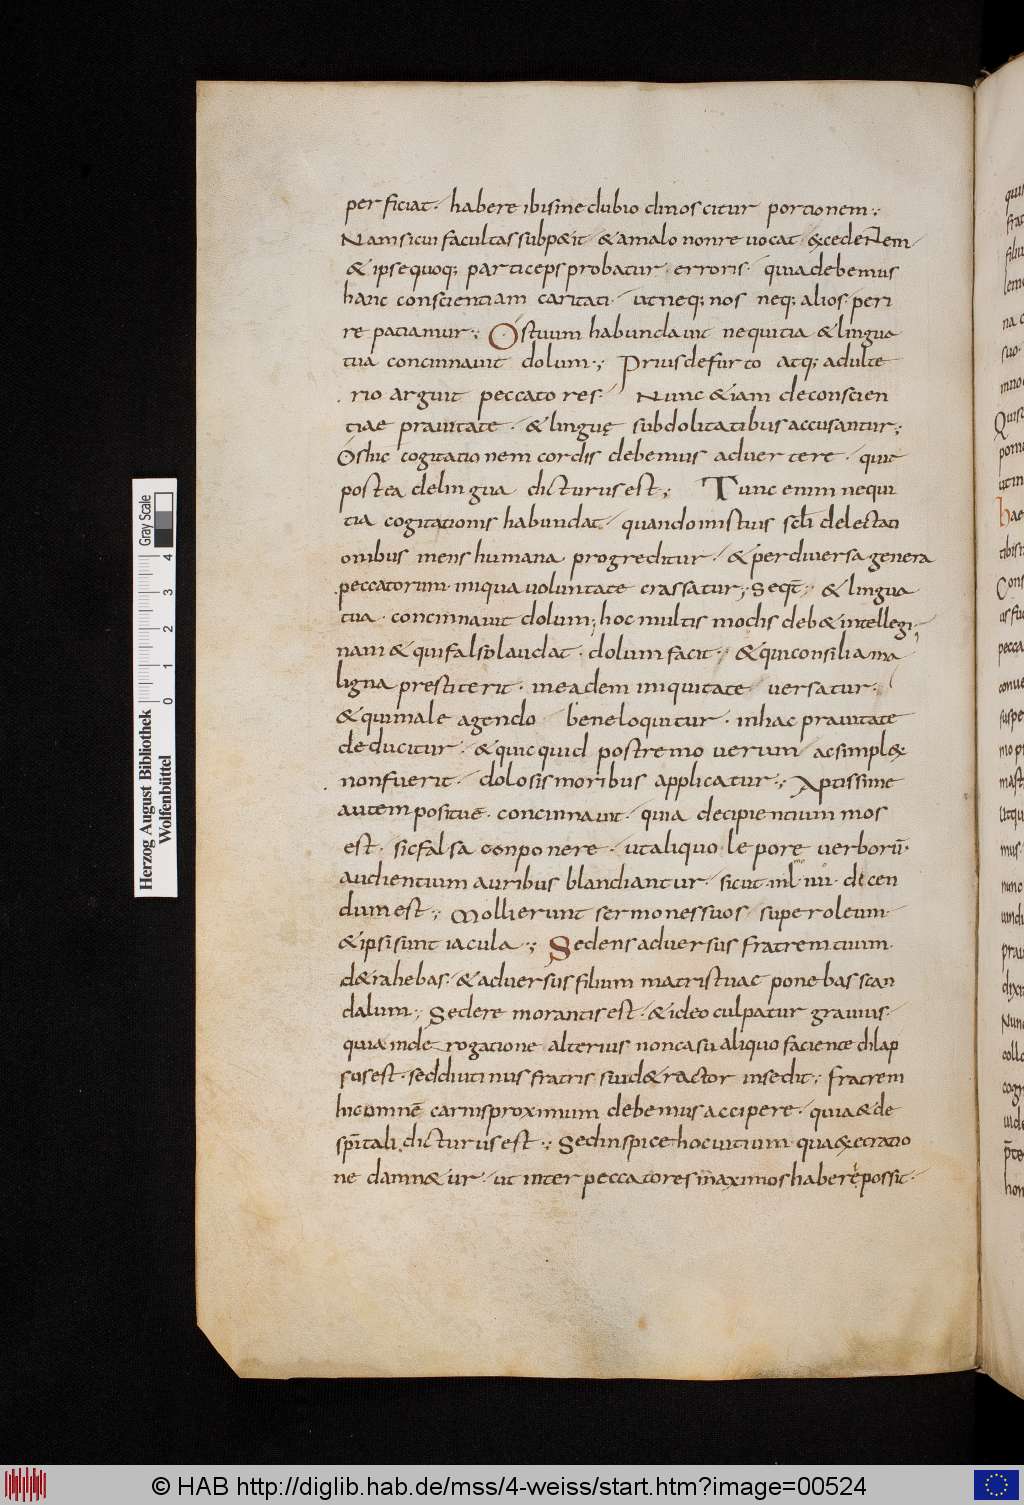 perficiat· habere ibi sine dubio dinoscitur portionem·;
Nam si cui facultas subp&it· & a malo non revocat· &xcedentem·
& ipse quoq; particeps probatur erroris· quia debemus
hanc conscientiam caritati· ut neq; nos neq; alios peri
re patiamur·; Os tuum habundavit nequitia & lingua
tua concinnavit dolum·; Prius de furto atq; adulte
rio arguit peccatores· Nunc &iam de conscien
tiae pravitate· & linguę subdolitatibus accusantur·;
Os hic cogitationem cordis debemus advertere· quit
postea de lingua dicturus est·; Tunc enim nequi
tia cogitationis habundat· quando in istius scl̄i delectati
onibus mens humana progreditur· & per diversa genera
peccatorum iniqua voluntate crassatur·; Seqt̄· & lingua
tua· concinnavit dolum; hoc multis modis deb& intellegi·
nam & qui falso laudat· dolum facit· & qui consilia ma
ligna prestiterit· in eadem iniquitate versatur·
& qui male agendo bene loquitur· in hac pravitate
deducitur· & quicquid postremo verum ac simpl&x
non fuerit· dolosis moribus applicatur·; Aptissime
autem positū· concinnavit· quia decipientium mos
est· sic falsa conponere· ut aliquo lepore verborū·
audientium auribus blandiantur· sicut in l· iiii· decen
dum est·; Mollierunt sermones suos super oleum·
& ipsi sunt iacula·; Sedens adversus fratrem tuum·
d&rahebas· & adversus filium matris tuae ponebas scan
dalum·; Sedere morantis est· & ideo culpatur gravius·
quia in derogatione alterius non casu aliquo faciente dilap
sus est· sed diutinus fratris sui d&ractor insedit·; fratrem
hic omnē carnis proximum debemus accipere· quia & de
sp̄itali dicturus est·; Sed inspice hoc vitium qua &xecratio
ne damn&ur· ut inter peccatores maximos habere possit·
Herzog August Bibliothek
Wolfenbüttel
0 1 2 3 4
Gray Scale
© HAB http://diglib.hab.de/mss/4-weiss/start.htm?image=00524